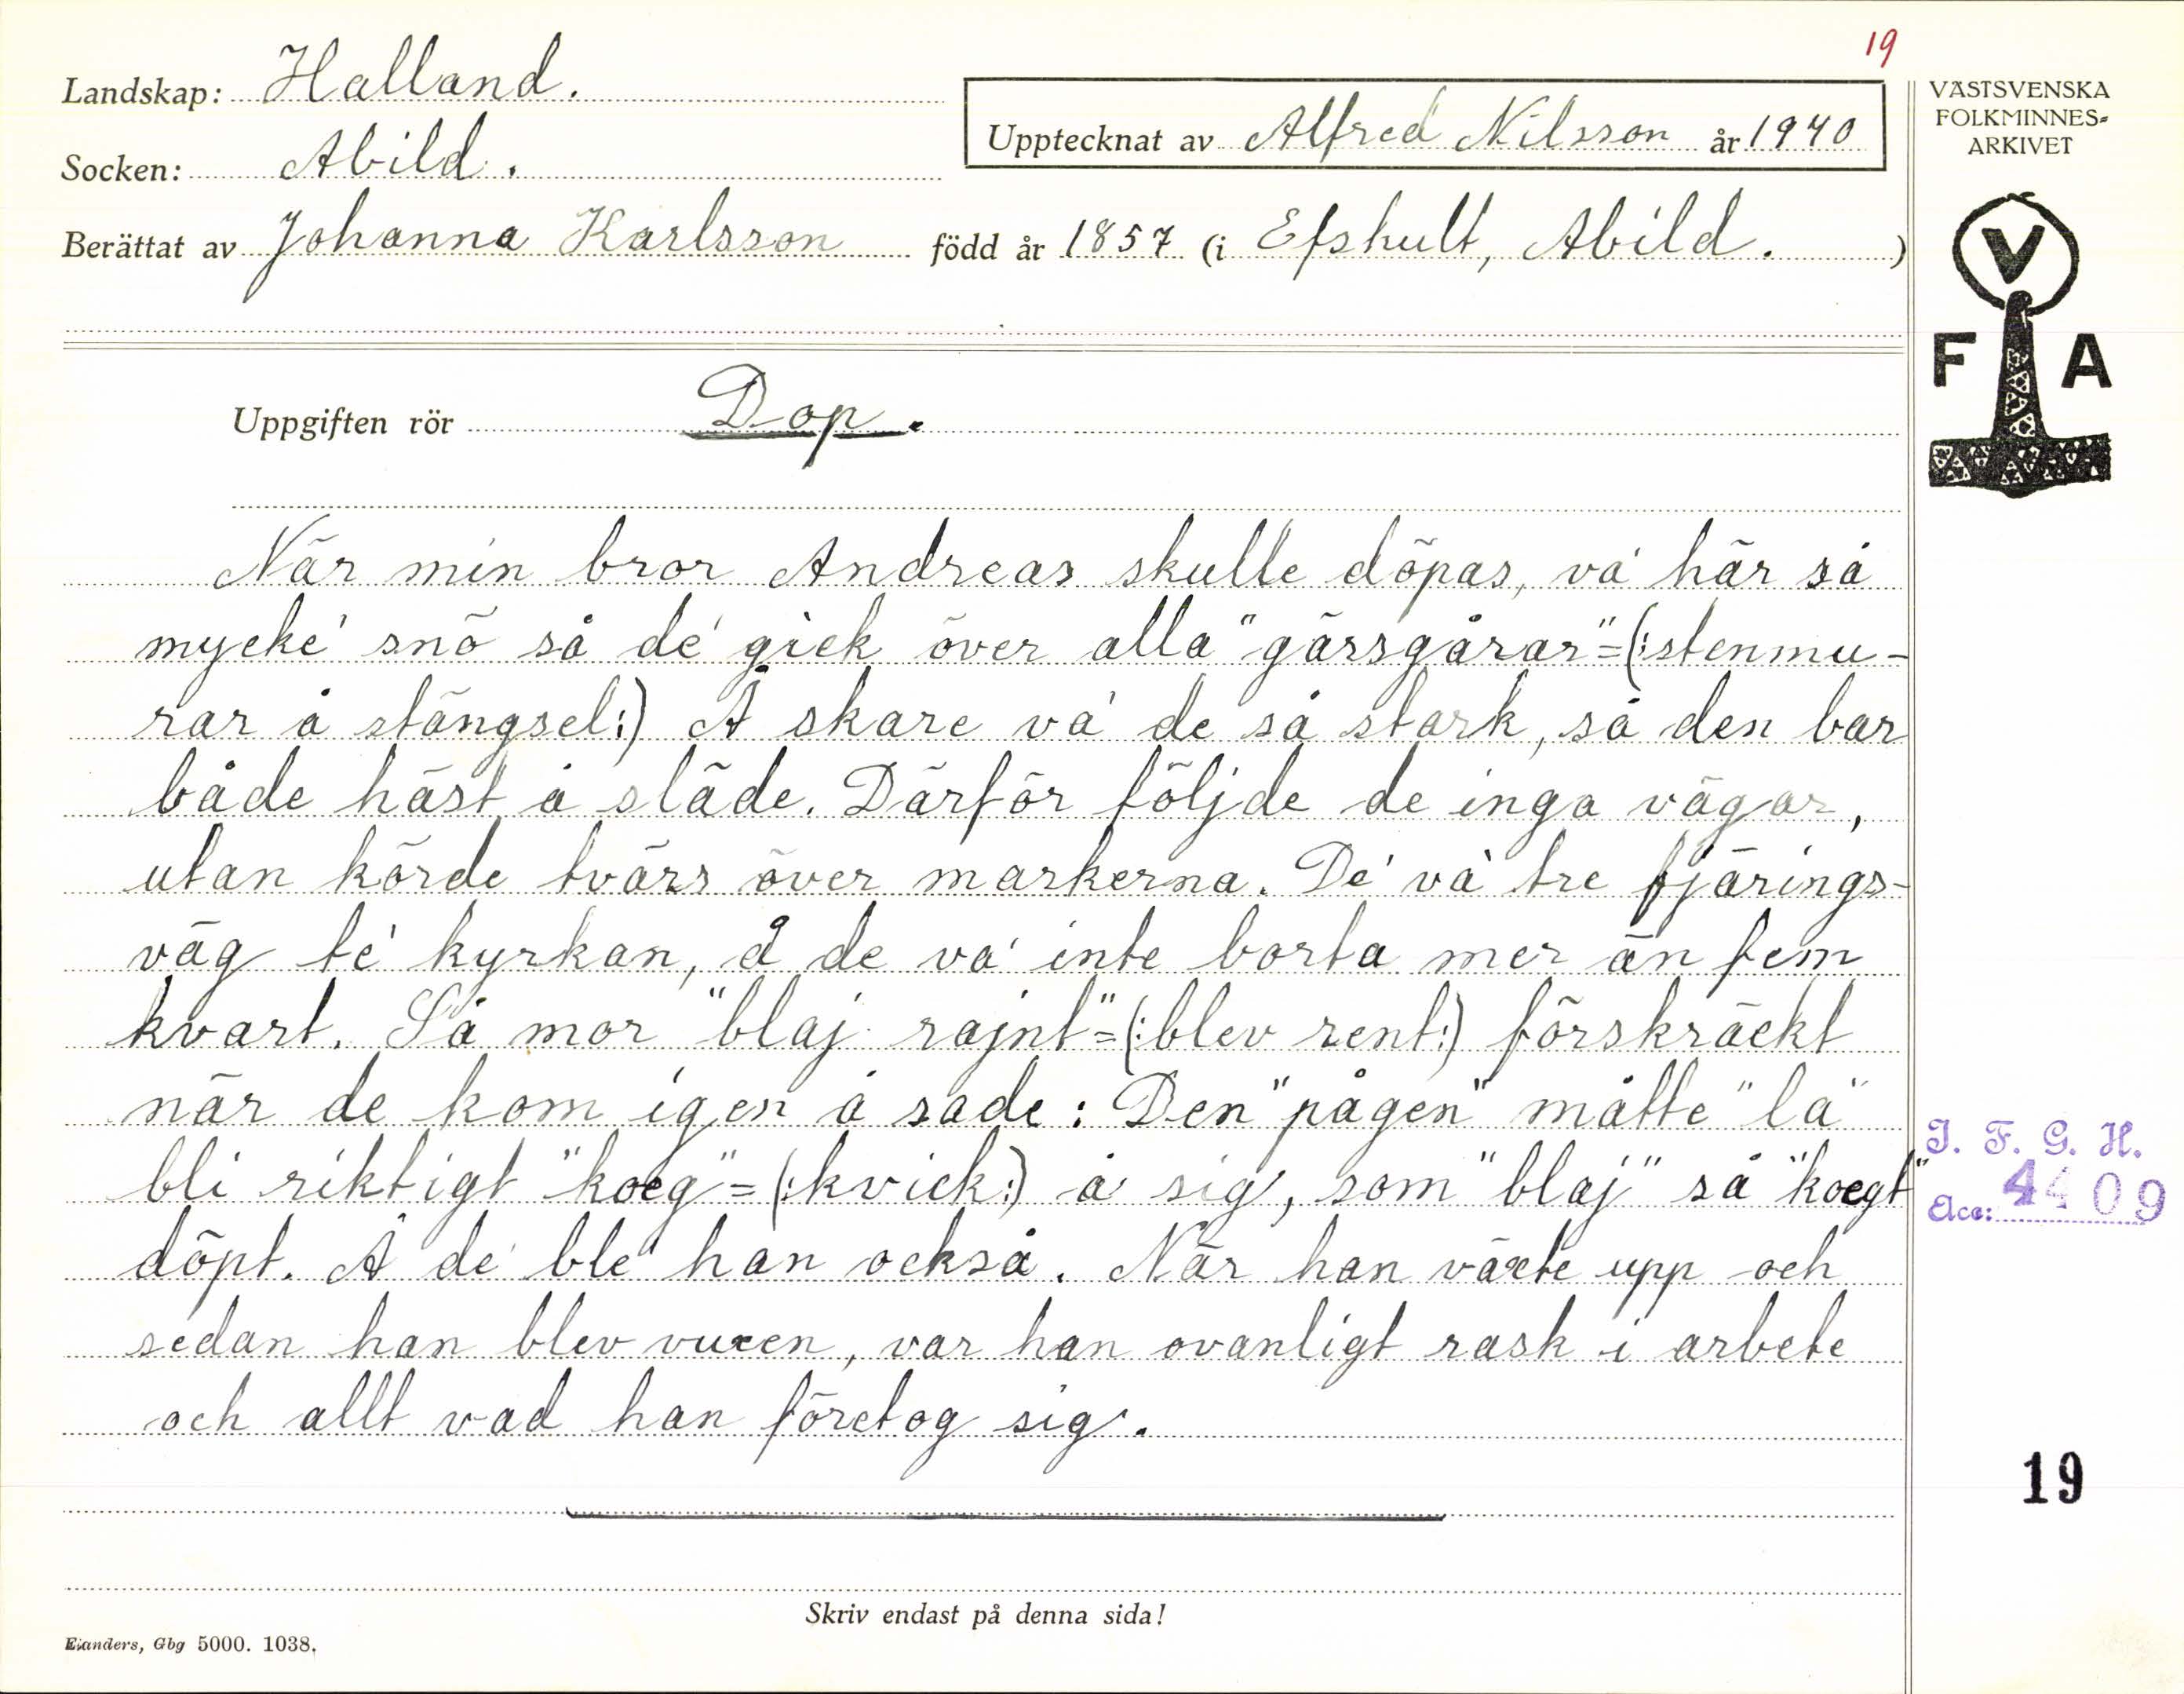 19
Landskap: Halland.
Upptecknat av Alfred Nilsson år 1940
Socken: Abild.
Berättat av Johanna Karlsson född år 1857 (i Efshult, Abild. )
Uppgiften rör Dop.
När min bror Andreas skulle döpas, va' här så
mycke' snö så de' gick över alla "gärsgårar"=(:stenmu-
rar å stängsel:) Å skare va' de så stark, så den bar
både häst å släde. Därför följde de inga vägar,
utan körde tvärs över markerna. De' va' tre fjärings-
väg te' kyrkan, å de va' inte borta mer än fem
kvart. Så mor "blaj rajnt"=(:blev rent:) förskräckt
när de kom igen å sade: Den "pågen" måtte "la"
bli riktigt "koeg"=(:kvick:) å sig, som "blaj" så "koegt"
döpt. Å de' ble' han också. När han växte upp och
sedan han blev vuxen, var han ovanligt rask i arbete
och allt vad han företog sig.
Skriv endast på denna sida!
Elanders, Gbg 5000. 1038.
VÄSTSVENSKA
FOLKMINNES=
ARKIVET
V
F A
I. F. G. H.
Acc: 4409
19